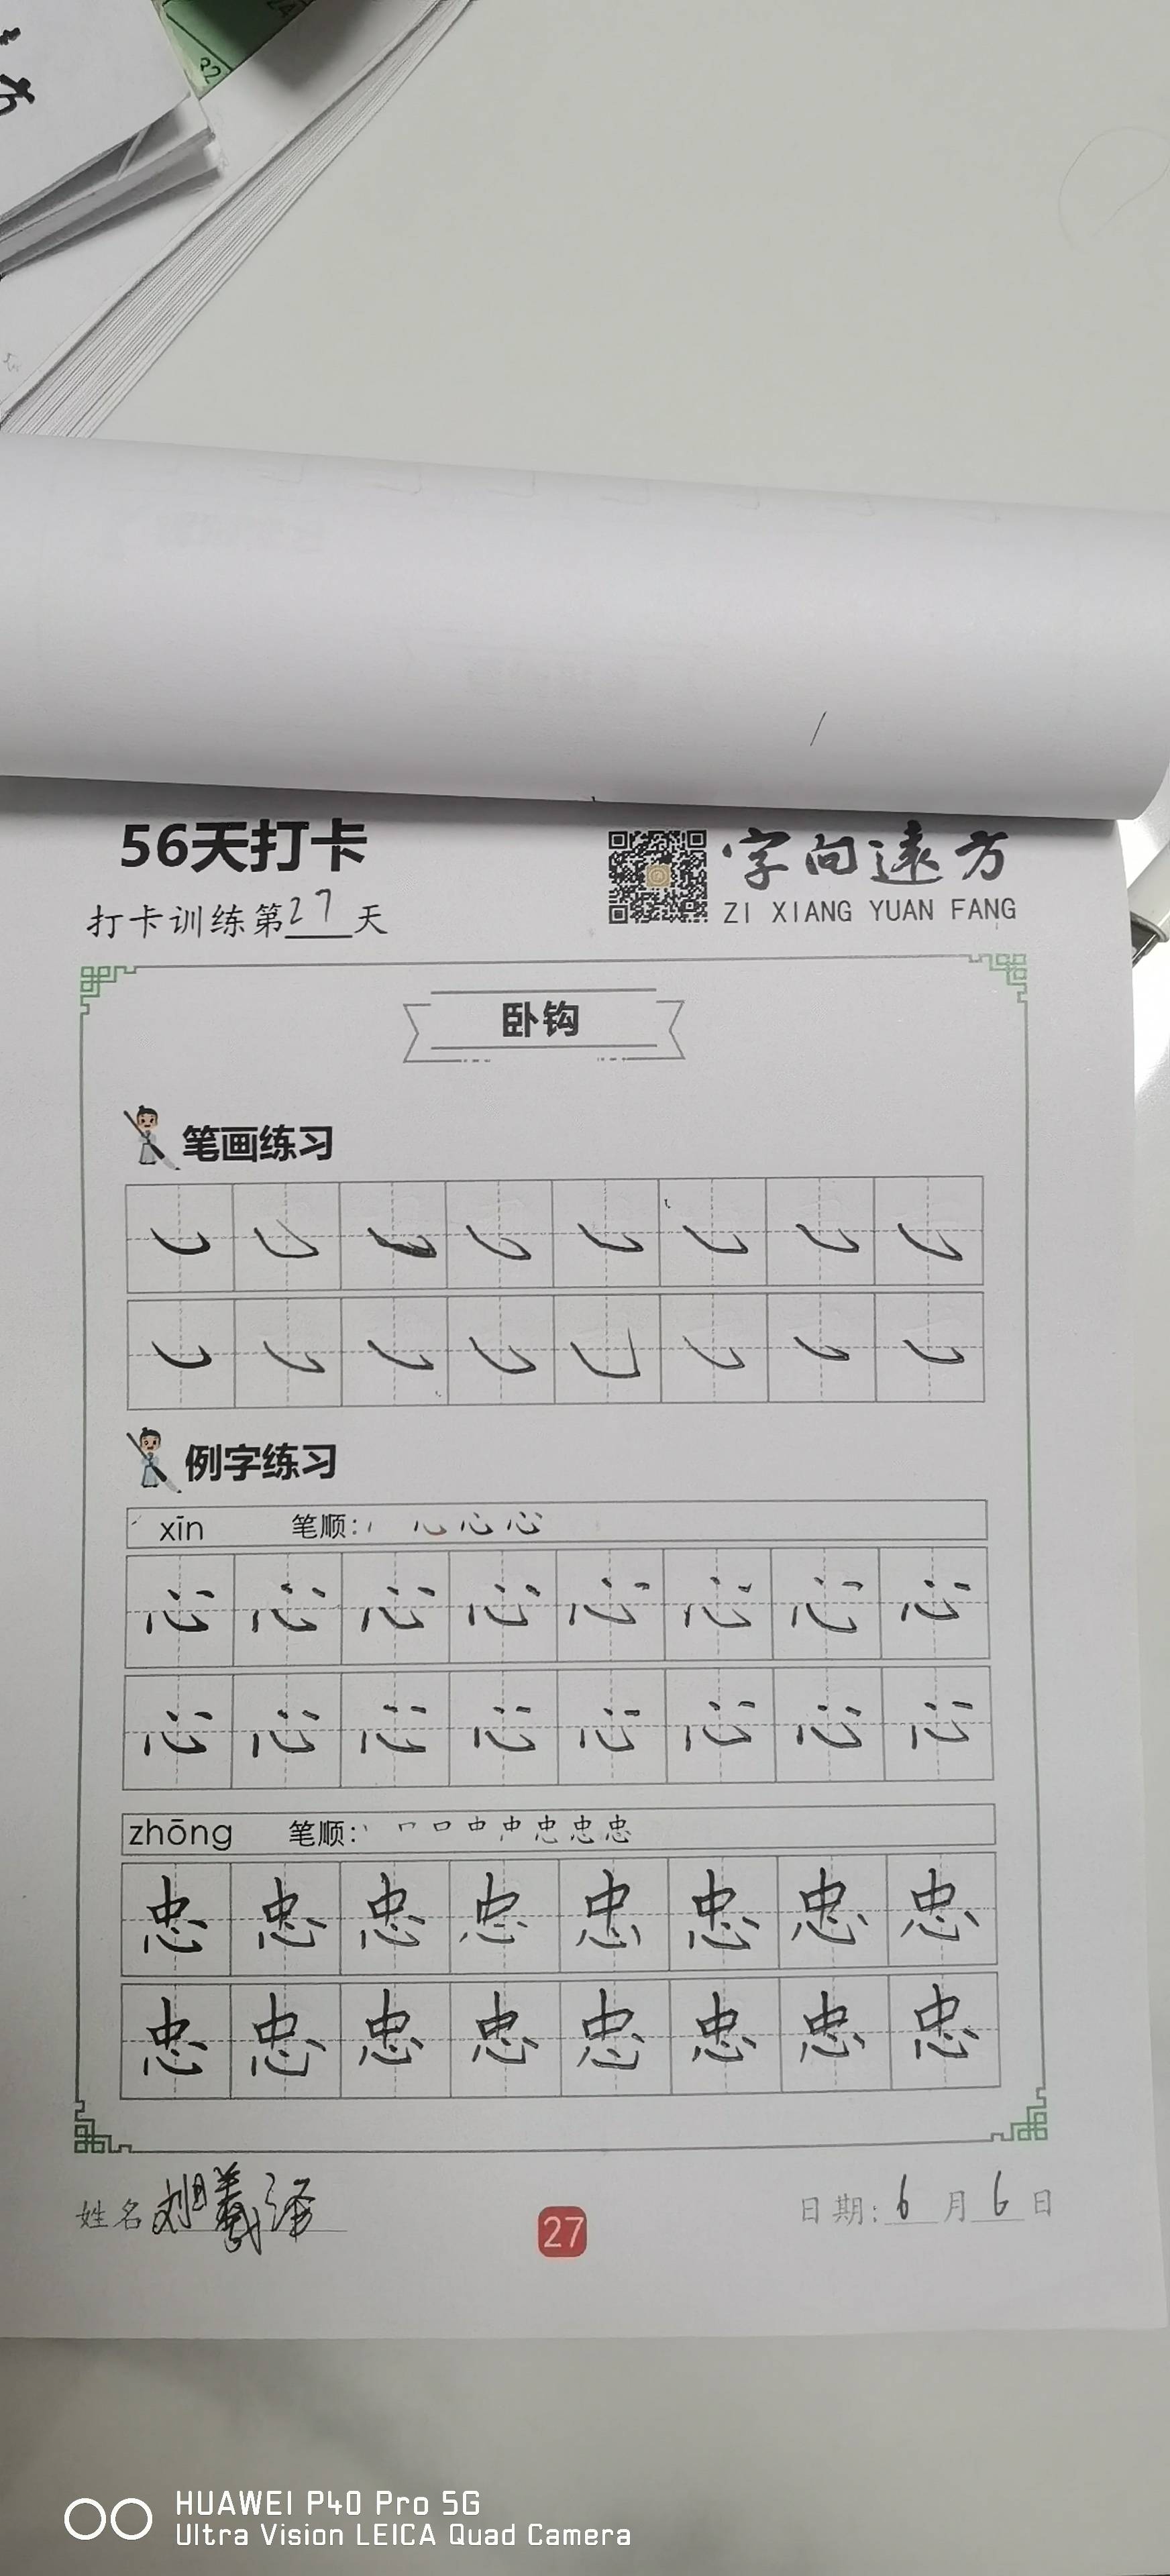 方
56天打卡
字向遠方
打卡训练第27天
ZI XIANG YUAN FANG
卧钩
笔画练习
例字练习
xīn 笔顺: 心
心 心 心 心 心 心 心 心
心 心 心 心 心 心 心 心
zhōng 笔顺: 丶 口 口 中 中 忠 忠 忠
忠 忠 忠 忠 忠 忠 忠 忠
忠 忠 忠 忠 忠 忠 忠 忠
姓名 羲泽
27
日期: 6 月 6 日
HUAWEI P40 Pro 5G
Ultra Vision LEICA Quad Camera